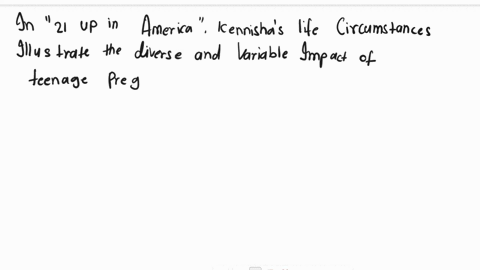 In "21 up in America". Kennisha's life Circumstances
Illustrate the diverse and Variable Impact of
teenage Preg